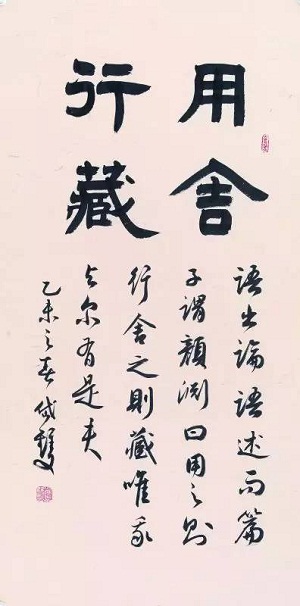 用舍
行藏
语出论语述而篇
子谓颜渊曰用之则
行舍之则藏唯我
与尔有是夫
乙未之春岱